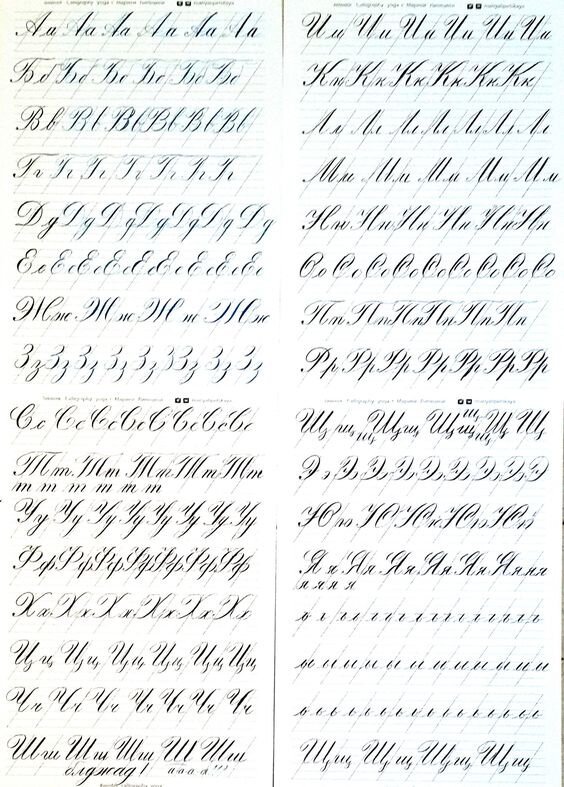 Calligraphy yoga с
Аа Аа Аа Аа Аа Аа
Бб Бб Бб Бб Бб Бб
Вв Вв Вв Вв Вв Вв
Гг Гг Гг Гг Гг Гг
Дд Дд Дд Дд Дд Дд Дд
Ее Ее Ее Ее Ее Ее Ее Ее
Жж Жж Жж Жж
Зз Зз Зз Зз Зз Зз Зз Зз
Calligraphy yoga с
Ии Ии Ии Ии Ии Ии
Кк Кк Кк Кк Кк Кк
Лл Лл Лл Лл Лл Лл
Мм Мм Мм Мм Мм
Нн Нн Нн Нн Нн Нн
Оо Оо Оо Оо Оо Оо Оо Оо
Пп Пп Пп Пп Пп Пп
Рр Рр Рр Рр Рр Рр Рр
Calligraphy yoga с
Сс Сс Сс Сс Сс Сс Сс
Тт Тт Тт Тт Тт
т т т т т т
Уу Уу Уу Уу Уу Уу Уу Уу
Фф Фф Фф Фф Фф Фф Фф
Хх Хх Хх Хх Хх Хх
Цц Цц Цц Цц Цц Цц
Чч Чч Чч Чч Чч Чч Чч
Шш Шш Шш Шш Шш
Calligraphy yoga с
Щщ щ Щщ Щщ Щщ Щ
Ээ Ээ Ээ Ээ Ээ Ээ Ээ
Юю Юю Юю Юю Юю
Яя Яя Яя Яя Яя Яя я я
я я я я
ь ь ь ь ь ь ь ь ь ь ь ь
ы ы ы ы ы ы ы ы ы ы
ъ ъ ъ ъ ъ ъ ъ ъ ъ ъ ъ
Щщ Щщ Щщ Щщ